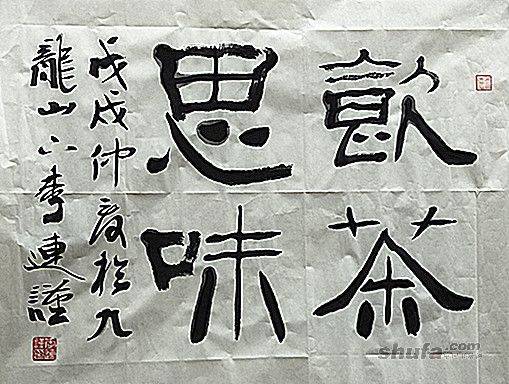 飲茶
思味
戊戌仲夏於九
龍山下李連謹
shufa.com